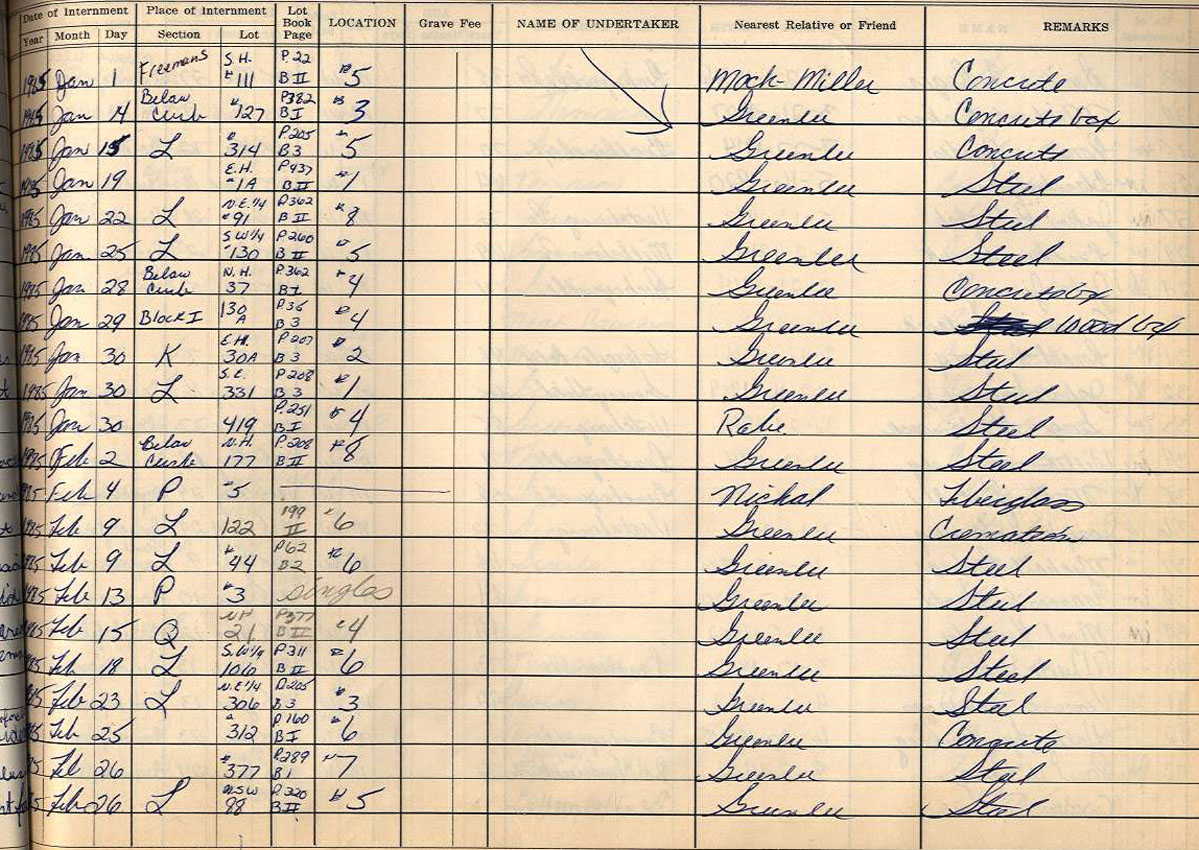 Date of Internment Place of Internment Lot Book Page LOCATION Grave Fee NAME OF UNDERTAKER Nearest Relative or Friend REMARKS
Year Month Day Section Lot
1985 Jan 1 Freemans S.H. #111 P.22 B II #5 Mock-Miller Concrete
1985 Jan 14 Below Curb #127 P382 B I #3 Greenlee Concrete box
1985 Jan 15 L #314 P.205 B3 #5 Greenlee Concrete
1985 Jan 19 E.H. #1A P437 B II #1 Greenlee Steel
1985 Jan 22 L N.E. 1/4 #91 P.362 B II #8 Greenlee Steel
1985 Jan 25 L S.W 1/4 #130 P.260 B II #5 Greenlee Steel
1985 Jan 28 Below Curb N.H. 37 P.362 B I #4 Greenlee Concrete box
1985 Jan 29 Block I 130 A P.36 B3 #4 Greenlee Wood box
1985 Jan 30 K E.H. 30A P207 B3 #2 Greenlee Steel
1985 Jan 30 L S.E. 331 P208 B3 #1 Greenlee Steel
1985 Jan 30 419 P.251 B I #4 Rabe Steel
1985 Feb 2 Below Curb N.H. 177 P.208 B II #8 Greenlee Steel
1985 Feb 4 P #5 Nickal Fiberglass
1985 Feb 9 L 122 199 II #6 Greenlee Cremation
1985 Feb 9 L #44 P62 B2 #6 Greenlee Steel
1985 Feb 13 P #3 singles Greenlee Steel
1985 Feb 15 Q 21 P377 B II #4 Greenlee Steel
1985 Feb 18 L S.W 1/4 106 P.311 B II #6 Greenlee Steel
1985 Feb 23 L N.E 1/4 306 P.205 B3 #3 Greenlee Steel
1985 Feb 25 #312 P.160 B I #6 Greenlee Concrete
85 Feb 26 #377 P.289 B1 #7 Greenlee Steel
85 Feb 26 L N.S.W 98 P.320 B II #5 Greenlee Steel